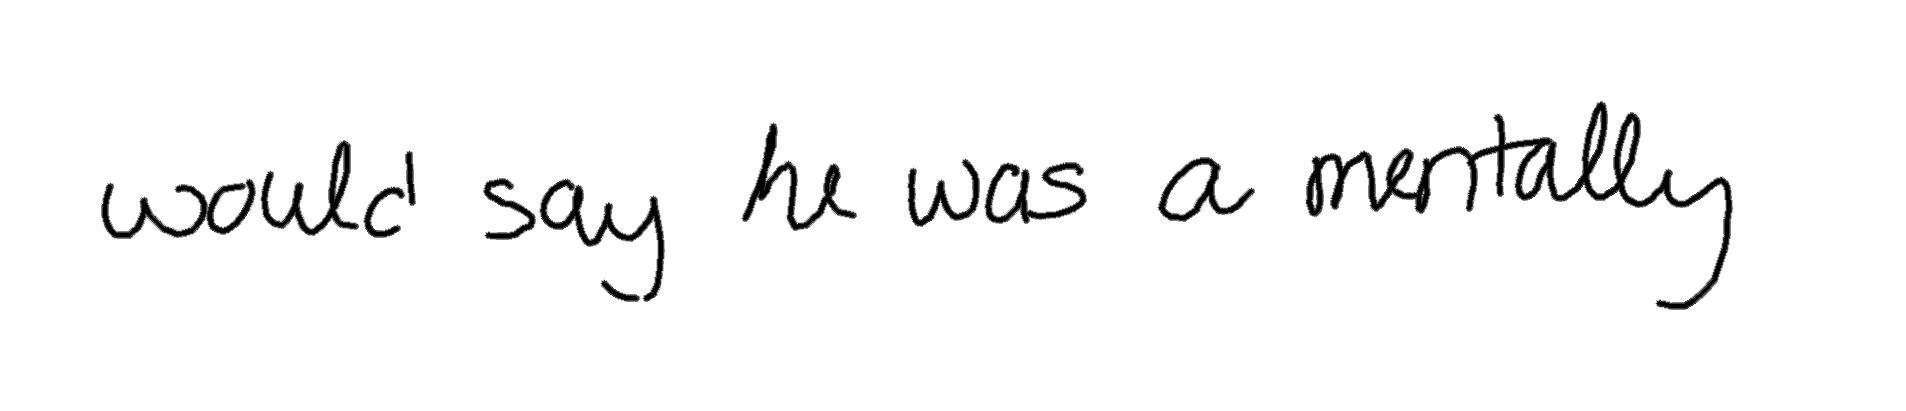 would say he was a mentally